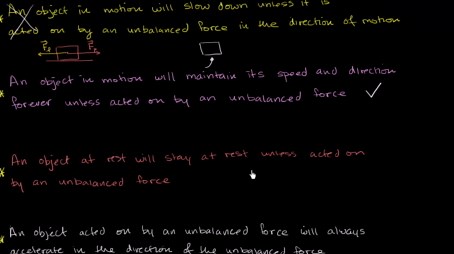 An object in motion will slow down unless it is
acted on by an unbalanced force in the direction of motion
An object in motion will maintain its speed and direction
forever unless acted on by an unbalanced force
An object at rest will stay at rest unless acted on
by an unbalanced force
An object acted on by an unbalanced force will always
accelerate in the direction of the unbalanced force